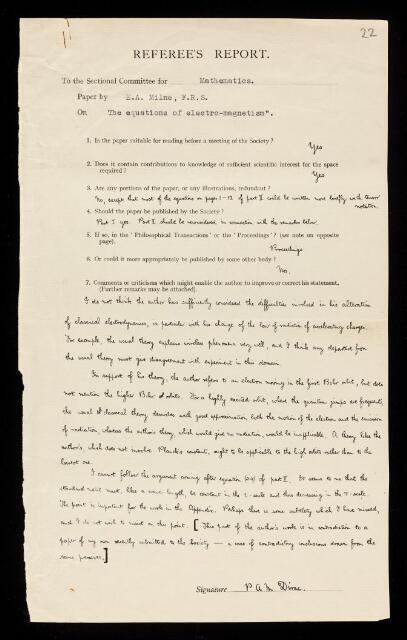 22
REFEREE'S REPORT.
To the Sectional Committee for Mathematics.
Paper by E.A. Milne, F.R.S.
On The equations of electro-magnetism".
1. Is the paper suitable for reading before a meeting of the Society?
Yes
2. Does it contain contributions to knowledge of sufficient scientific interest for the space
required?
Yes
3. Are any portions of the paper, or any illustrations, redundant?
No, except that most of the equations on pages 1-12 of part II could be written more briefly with tensor
notation.
4. Should the paper be published by the Society?
Part I yes. Part II should be reconsidered in connection with the remarks below.
5. If so, in the 'Philosophical Transactions' or the 'Proceedings'? (see note on opposite
page).
Proceedings
6. Or could it more appropriately be published by some other body?
No.
7. Comments or criticisms which might enable the author to improve or correct his statement.
(Further remarks may be attached).
I do not think the author has sufficiently considered the difficulties involved in his alteration
of classical electrodynamics, in particular with his change of the law of radiation of accelerating charges.
For example, the usual theory explains wireless phenomena very well, and I think any departure from
the usual theory must give disagreement with experiment in this domain.
In support of his theory, the author refers to an electron moving in the first Bohr orbit, but does
not mention the higher Bohr orbits. For a highly excited orbit, where the quantum jumps are frequent,
the usual classical theory describes with good approximation both the motion of the electron and the emission
of radiation, whereas the author's theory, which would give no radiation, would be inapplicable. A theory like the
author's, which does not involve Planck's constant, ought to be applicable to the high orbits rather than to the
lowest one.
I cannot follow the argument coming after equation of part II. It seems to me that the
standard must, like a wave length, be constant in the t-scale and thus decreasing in the τ-scale.
The point is important for the work in the Appendix. Perhaps there is some subtlety which I have missed,
and I do not wish to insist on this point. [This part of the author's work is in contradiction to a
paper of my own recently submitted to the Society — a case of contradictory conclusions drawn from the
same premises.]
Signature P A M Dirac.